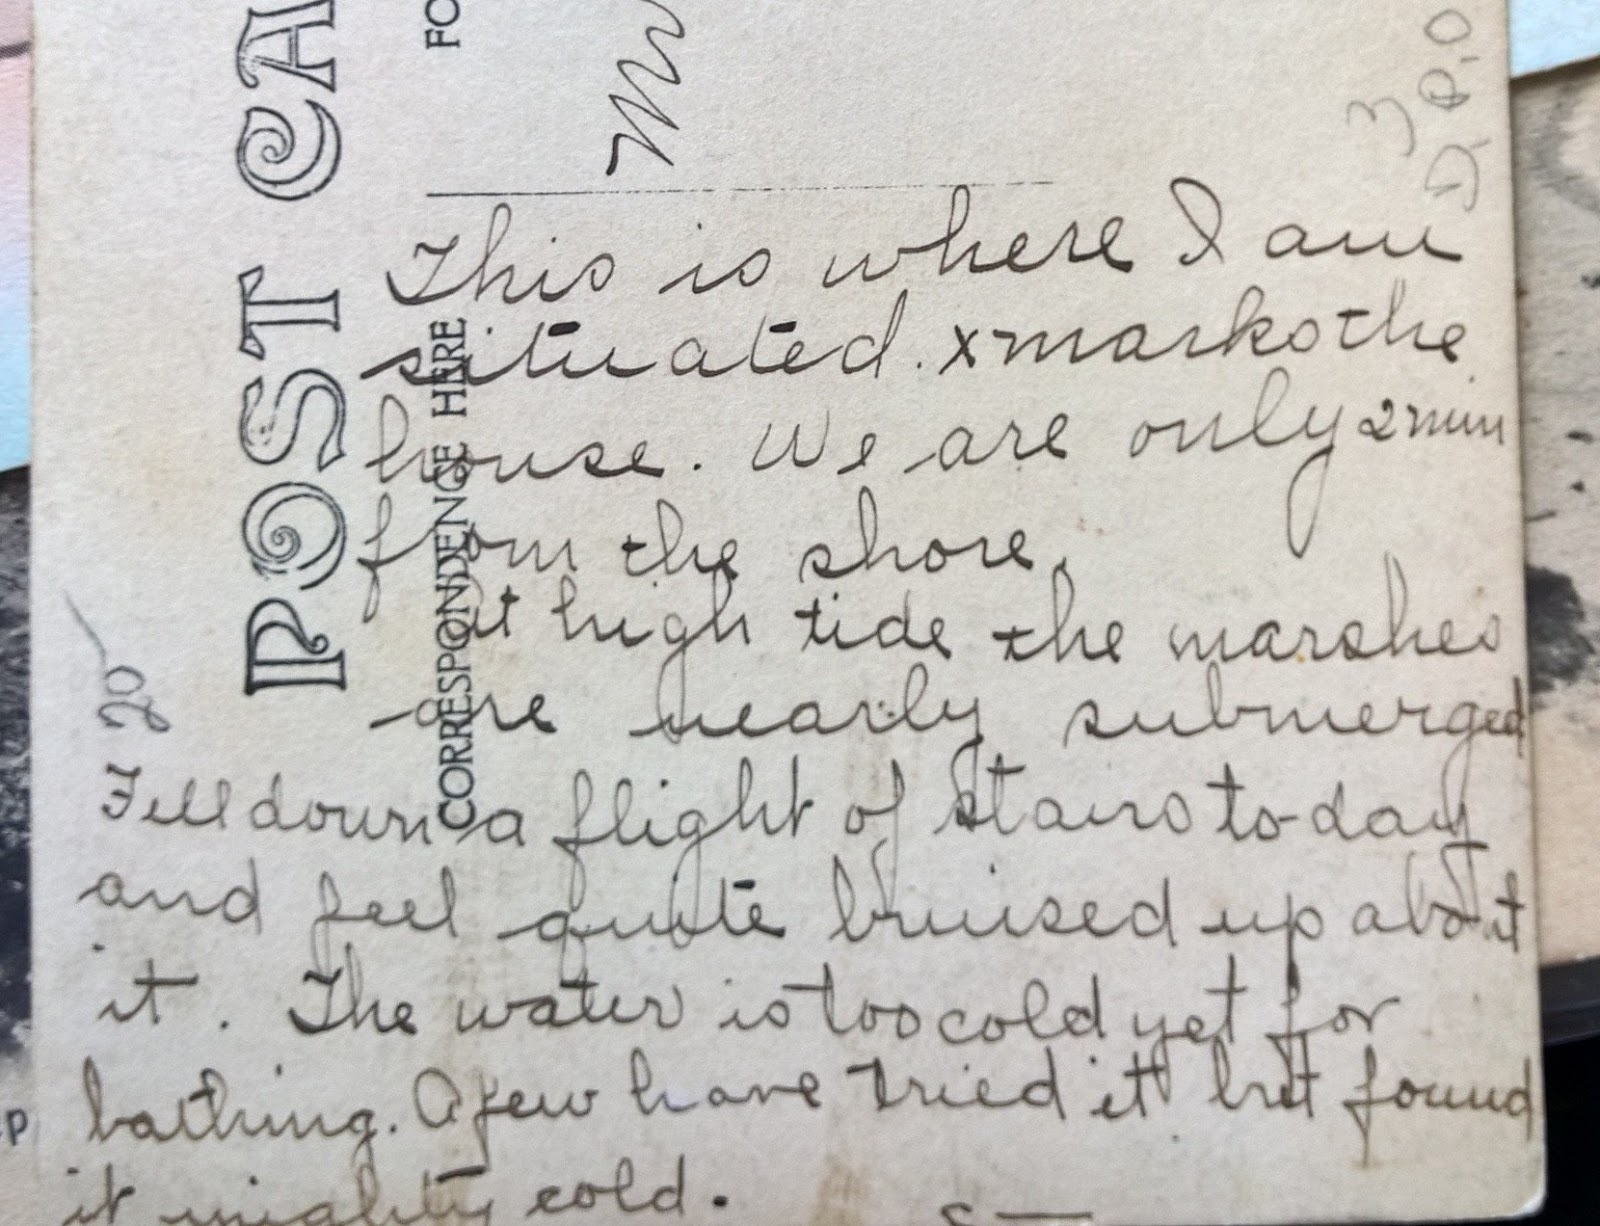 POST CA
CORRESPONDENCE HERE
FO
This is where I am
situated. x marks the
house. We are only 2 min
from the shore.
at high tide the marshes
are nearly submerged
Fell down a flight of stairs to-day
and feel quite bruised up about
it. The water is too cold yet for
bathing. A few have tried it but found
it mighty cold.
20
3
D P.O